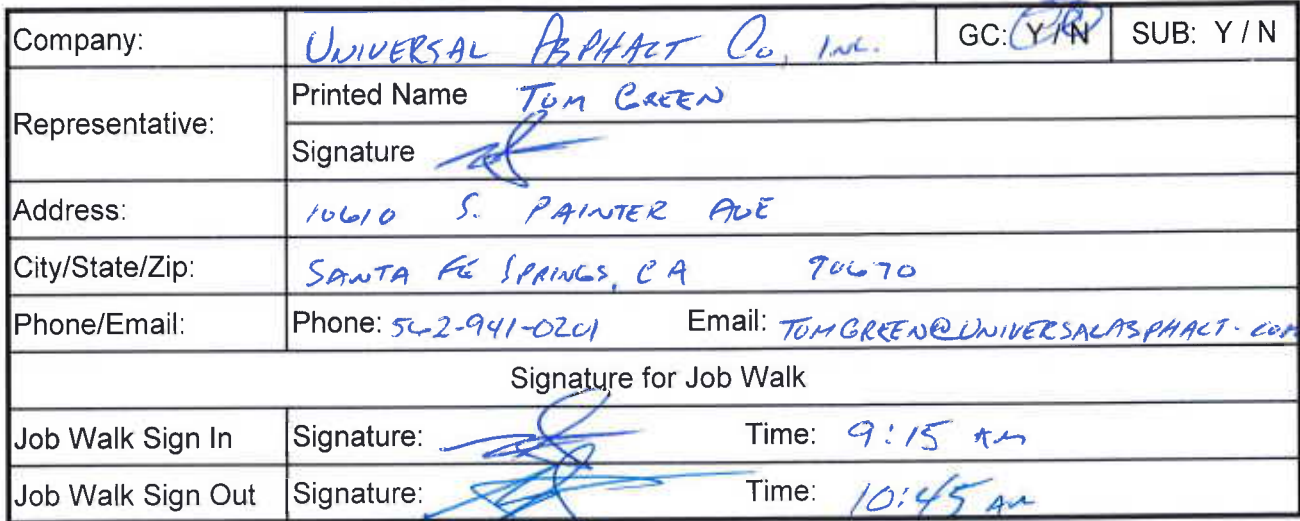 Company: UNIVERSAL ASPHALT Co, INC. GC: Y / N SUB: Y / N
Representative: Printed Name TOM GREEN
Signature
Address: 10610 S. PAINTER AVE
City/State/Zip: SANTA FE SPRINGS, CA 90670
Phone/Email: Phone: 562-941-0201 Email: TOMGREEN@UNIVERSALASPHALT.COM
Signature for Job Walk
Job Walk Sign In Signature: Time: 9:15 AM
Job Walk Sign Out Signature: Time: 10:45 AM